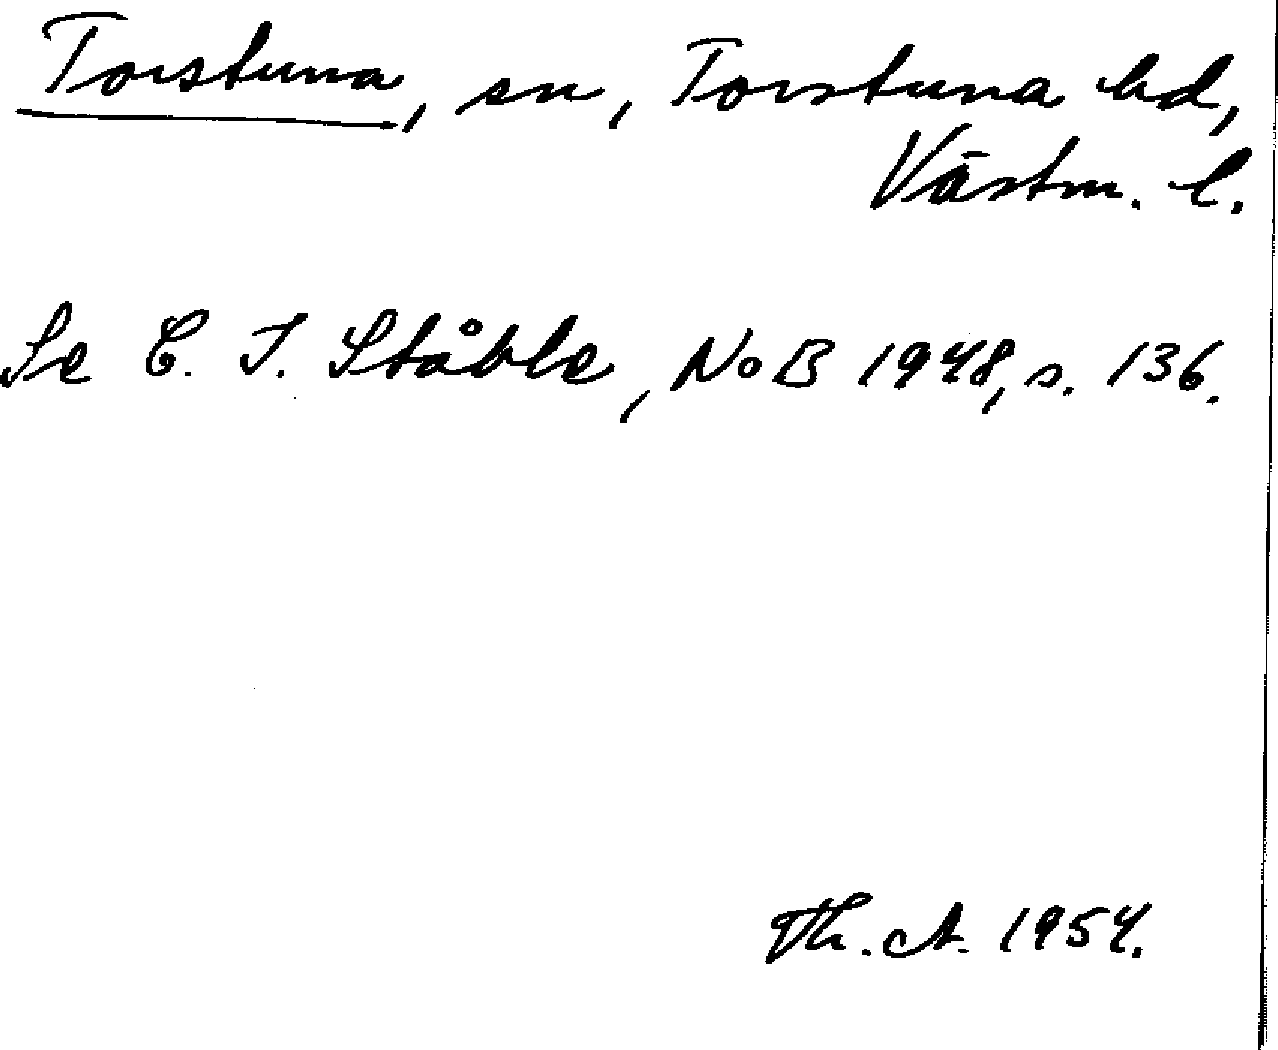 Torstuna, sn, Torstuna hd,
Västm. l.
Se C. I. Ståhle, NoB 1948, s. 136.
Th. A. 1954.